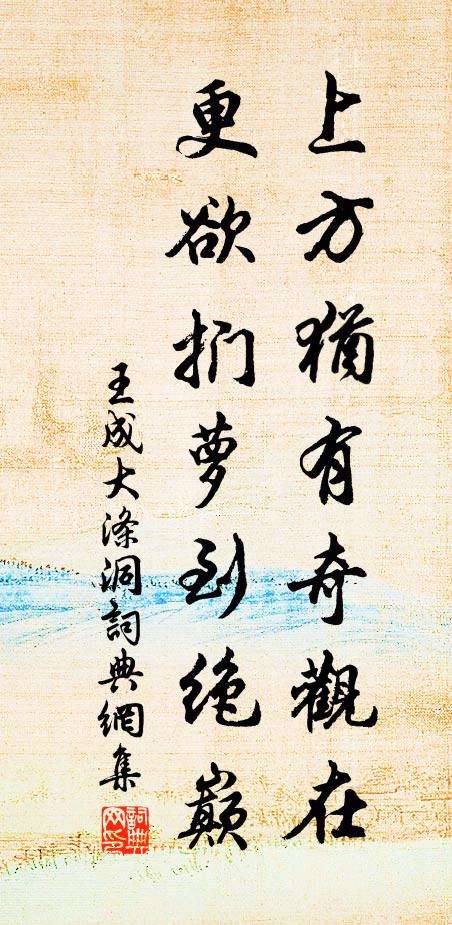 上方猶有奇觀在
更欲捫萝到绝巔
王成大涤洞詞典網集
詞典网印